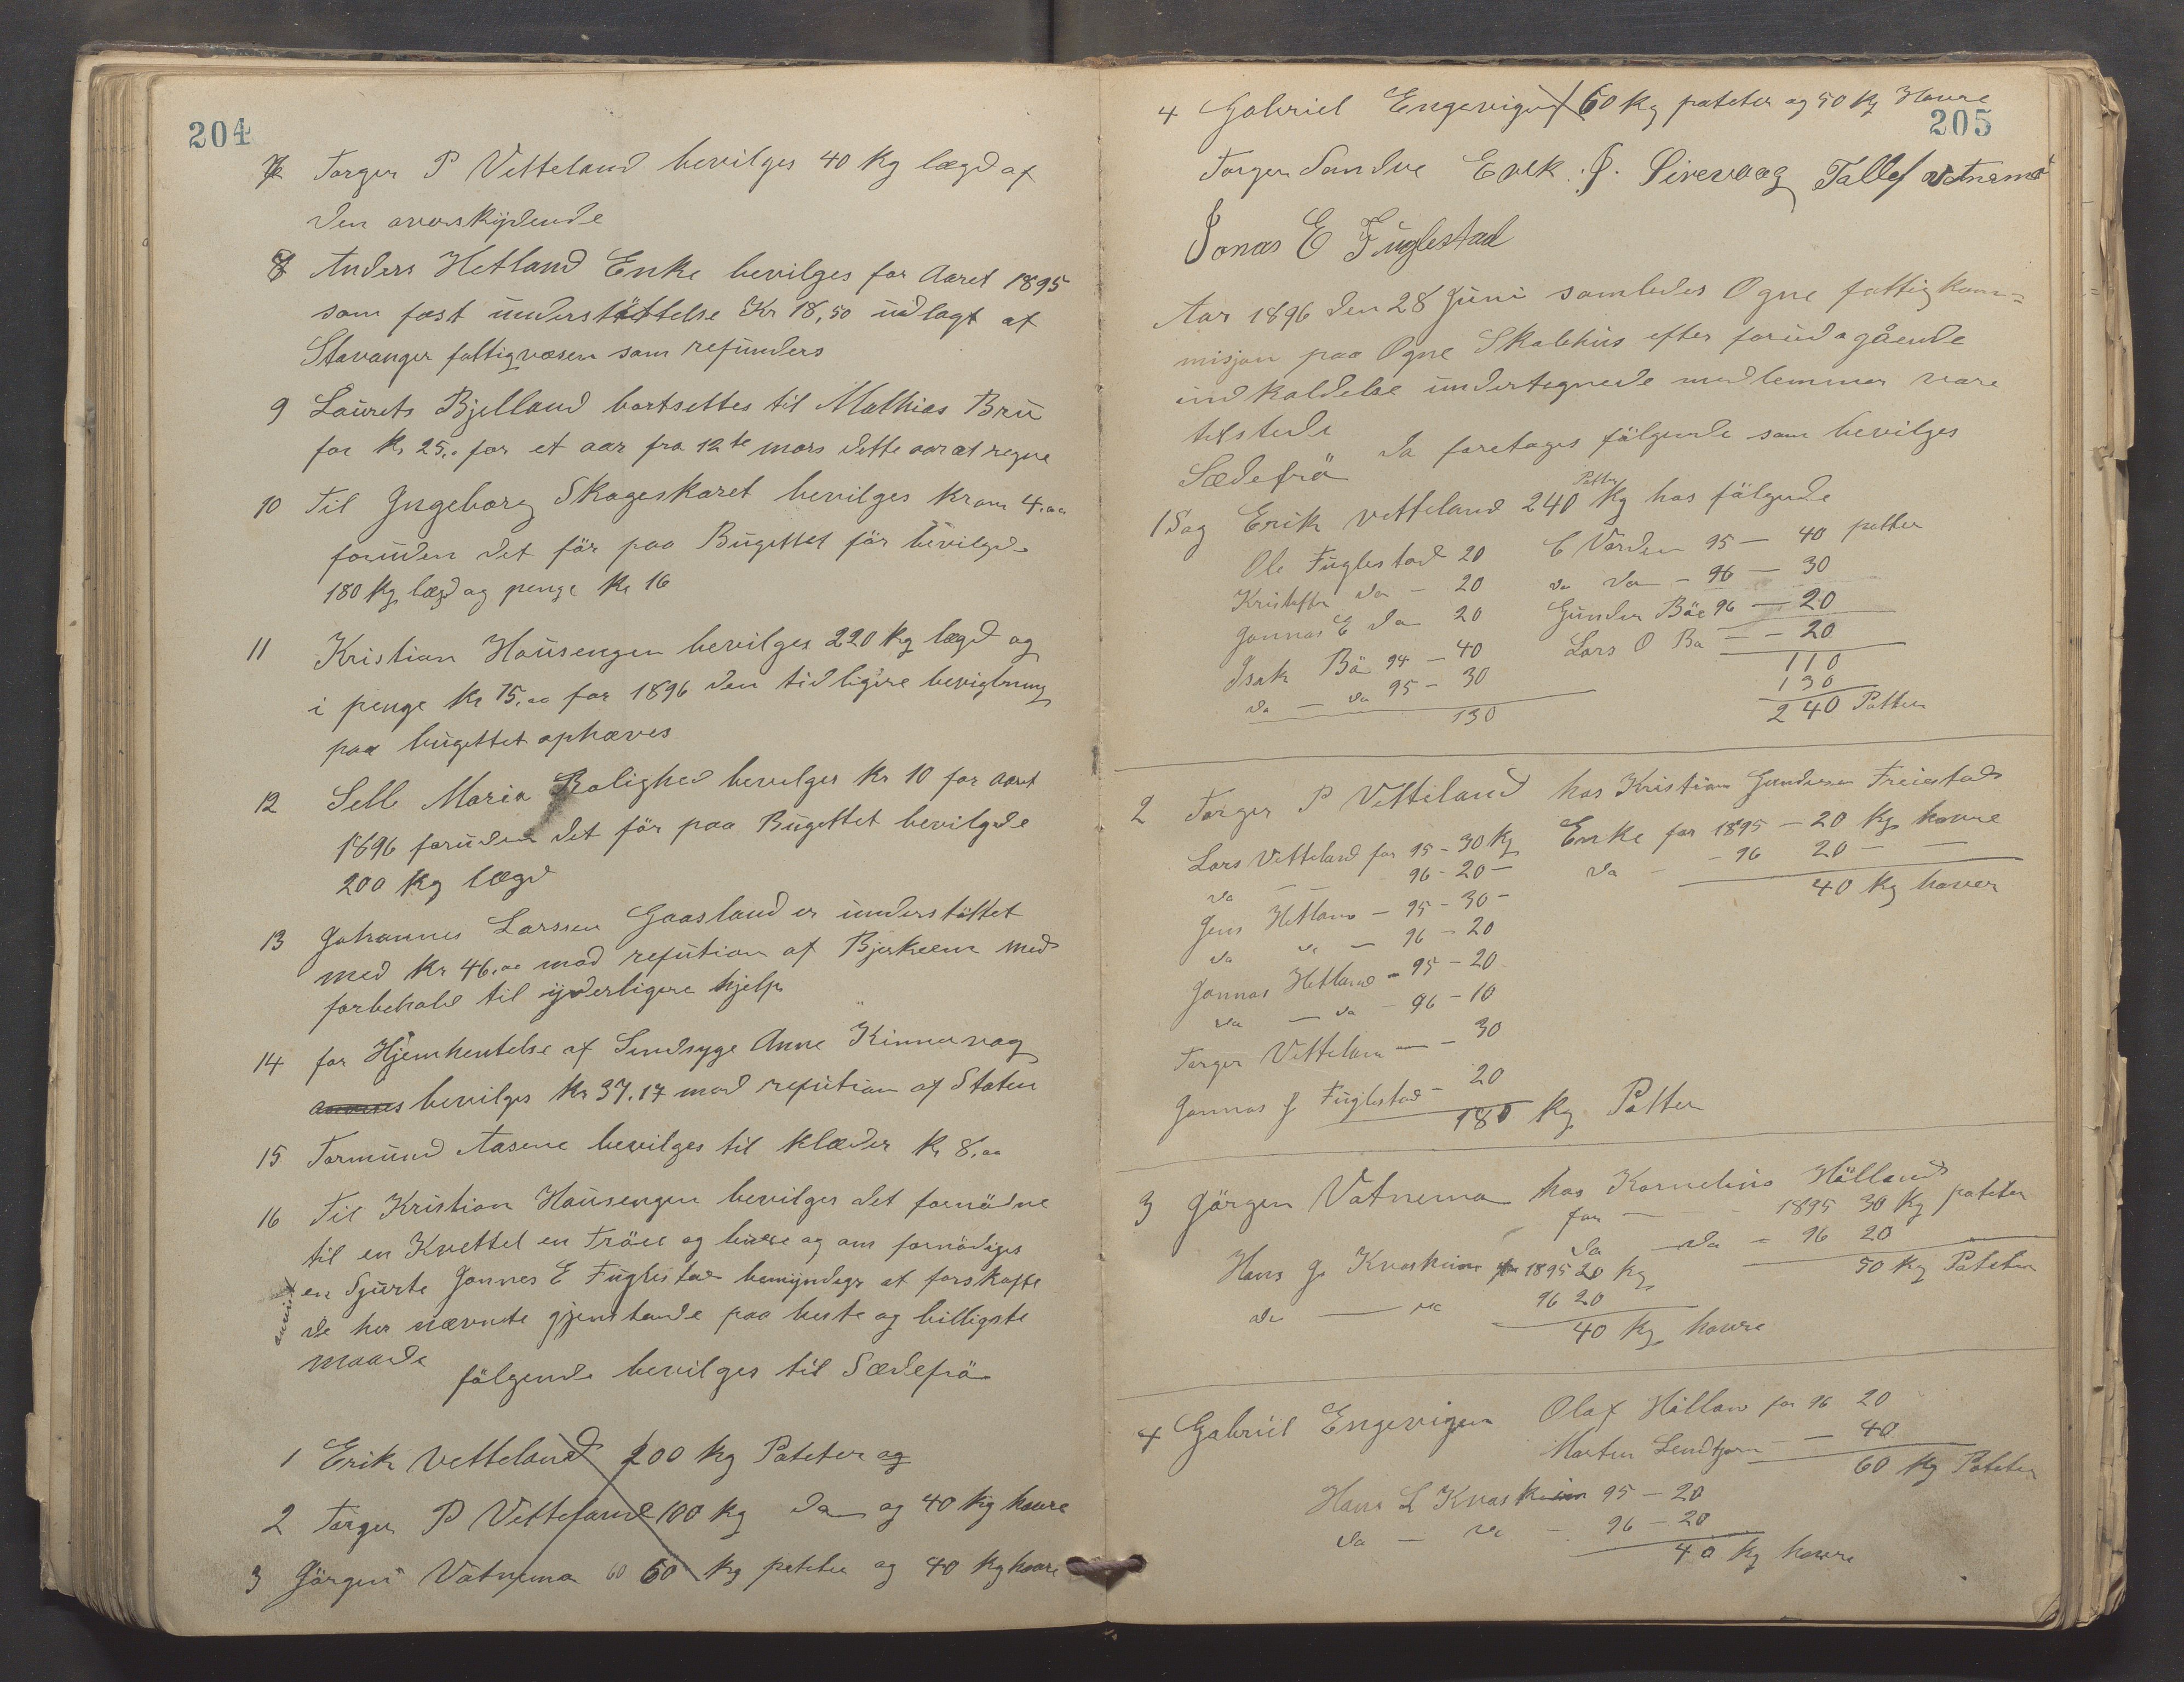 204
7 Torger P Vetteland bevilges 40 Kg lægd af
den overskydende
8 Anders Hetland Enke bevilges for Aaret 1895
som fast understöttelse Kr 18,50 udlagt af
Stavanger fattigvæsen som refunders
9 Laurets Bjelland bortsettes til Mathias Bru
for Kr 25,. for et aar fra 12te mars dette aar at regne
10 Til Ingeborg Skogeskaret bevilges Kr om 4.00
foruden det för paa Bugettet för bevilgede
180 Kg lægd og penge Kr 16
11 Kristian Hausengen bevilges 220 Kg lægd og
i penge Kr 15,00 for 1896 den tidligere bevigbning
paa bugettet ophæves
12 Sell Maria Rolighed bevilges Kr 10 for aaret
1896 foruden det för paa Bugettet bevilgede
200 Kg lægd
13 Johannes Larssen Gaasland er understöttet
med Kr 46,00 mod refution af Bjerkreim med
forbehold til yderligere hjelp
14 for Hjemhentelse af Sindsyge Anne Kinnarvag
bevilges Kr 37.17 mod refution af Staten
15 Tormund Aasene bevilges til klæder Kr 8,00
16 Til Kristian Hausengen bevilges det fornödne
til en Kvettel en Tröie og buxe og om fornödiges
en Sjurte Jonnes E Fuglestad bemyndiges at forskaffe
de her nævnte gjenstande paa beste og billigste
maade
fölgende bevilges til Sædefrö
1 Erik Vetteland 200 Kg Poteter og
2 Torger P Vetteland 100 Kg do og 40 Kg havre
3 Jörgen Vatnemo 60 60 Kg poteter og 40 Kg havre
4 Gabriel Engevigen 60 Kg poteter og 50 Kg Havre
205
Torger Sandve Erik J. Sirevaag Tallef Vatnemo
Jonas E Fuglestad
Aar 1896 den 28 Juni samledes Ogne fattigkom=
misjon paa Ogne Skolehus efter forudagående
indkaldelse undertegnede medlemmer vare
tilstede
da foretages fölgende som bevilges
Sædefrö
1 Sag Erik Vetteland 240 Kg hos fölgende
Potter
Ole Fuglestad 20 C Varden 95 — 40 potter
Kristoffer do — 20 do do — 96 — 30
Jonnas E do 20 Gunder Böe 96 — 20
Isak Bö 94 — 40 Lars O Bö — — 20
do — do 95 — 30 110
130 130
240 Potter
2 Torger P Vetteland hos Kristian Gundersen Freiestad
Lars Vetteland for 95 — 30 Kg Enke for 1895 — 20 Kg havre
do — — 96 — 20 — do — 96 20 — —
Jens Hetland — 95 — 30 — 40 Kg havre
do do — 96 — 20
Jonnas Hetland — 95 — 20
do — do — 96 — 10
Torger Vetteland — — 30
Jonnas J Fuglestad — 20
180 Kg Potter
3 Jörgen Vatnemo hos Kornelius Hålland
for — 1895 30 Kg poteter
do — do — 96 20
50 Kg Poteter
Hans G Kvasheim 1895 20 Kg
do — do 96 20
40 Kg havre
4 Gabriel Engevigen Olaf Hålland for 96 20
Morten Lendtjørn — — 40
60 Kg Poteter
Hans L Kvasheim 95 — 20
do — do — 96 — 20
40 Kg havre